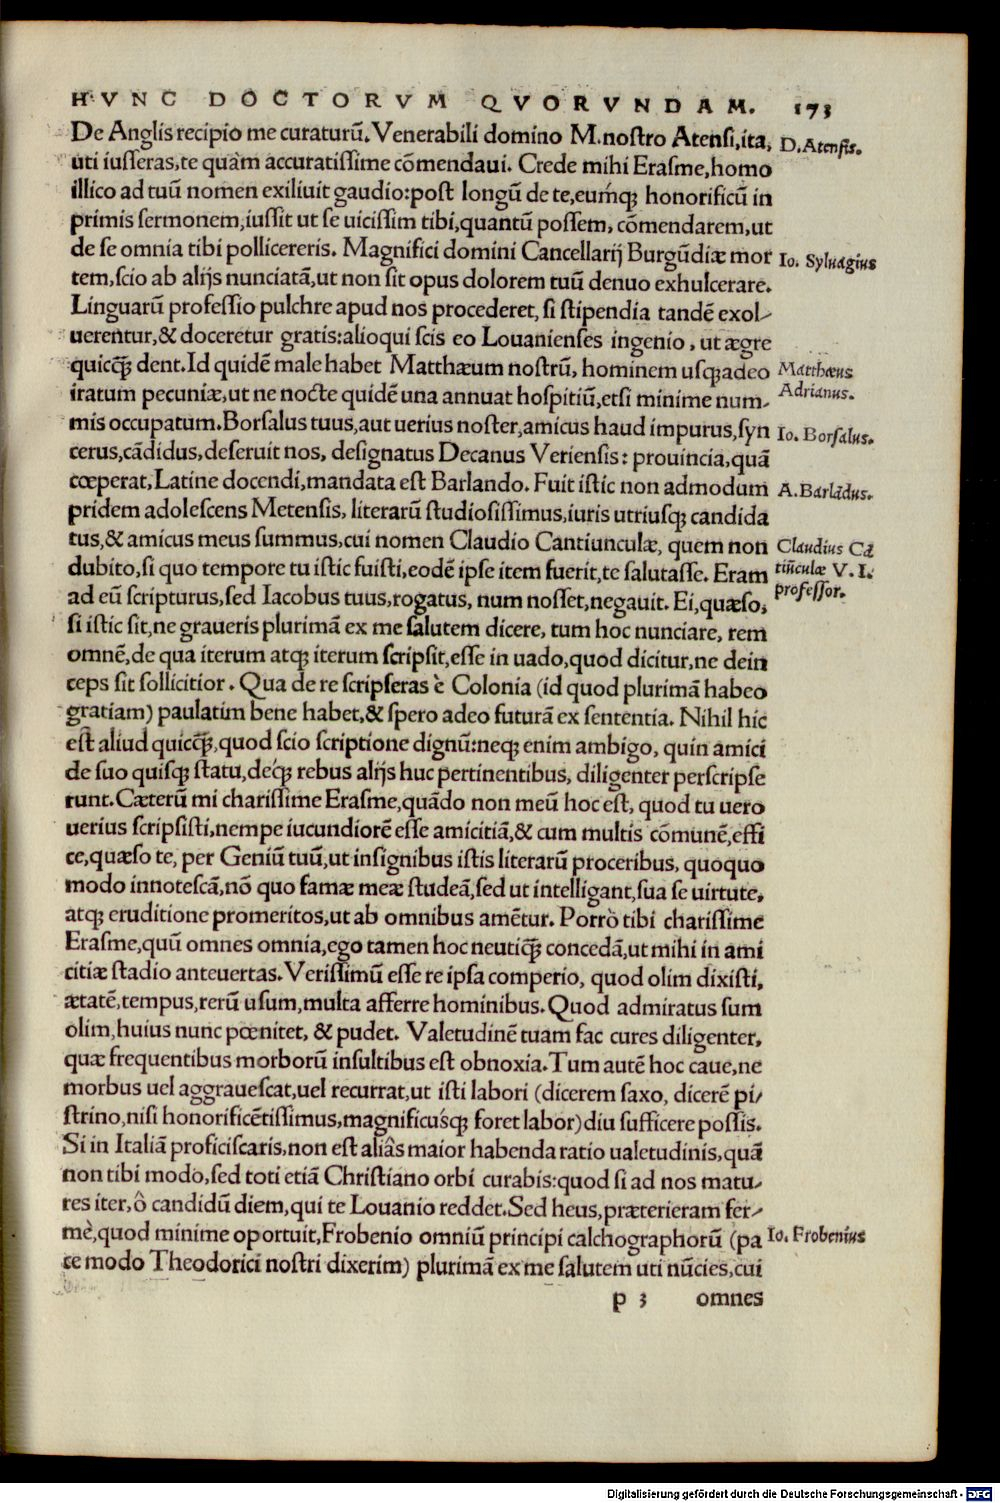 HVNC DOCTORVM QVORVNDAM. 173
De Anglis recipio me curaturū. Venerabili domino M. nostro Atensi, ita,
D. Atensis.
uti iusseras, te quàm accuratissime cōmendaui. Crede mihi Erasme, homo
illico ad tuū nomen exiliuit gaudio: post longū de te, eumq́; honorificū in
primis sermonem, iussit ut se uicissim tibi, quantū possem, cōmendarem, ut
de se omnia tibi pollicereris. Magnifici domini Cancellarij Burgūdiæ mor
Io. Syluagius
tem, scio ab alijs nunciatā, ut non sit opus dolorem tuū denuo exhulcerare.
Linguarū professio pulchre apud nos procederet, si stipendia tandē exol-
uerentur, & doceretur gratis: alioqui scis eo Louanienses ingenio, ut ægre
quicq̄; dent. Id quidē male habet Matthæum nostrū, hominem usq; adeo
Matthæus
iratum pecuniæ, ut ne nocte quidē una annuat hospitiū, etsi minime num-
Adrianus.
mis occupatum. Borsalus tuus, aut uerius noster, amicus haud impurus, syn
Io. Borsalus.
cerus, cādidus, deseruit nos, designatus Decanus Veriensis: prouincia, quā
cœperat, Latine docendi, mandata est Barlando. Fuit istic non admodum
A. Barlādus.
pridem adolescens Metensis, literarū studiosissimus, iuris utriusq; candida
tus, & amicus meus summus, cui nomen Claudio Cantiunculæ, quem non
Claudius Cā
dubito, si quo tempore tu istic fuisti, eodē ipse item fuerit, te salutasse. Eram
tiūculæ V. I.
ad eū scripturus, sed Iacobus tuus, rogatus, num nosset, negauit. Ei, quæso,
professor.
si istic sit, ne graueris plurimā ex me salutem dicere, tum hoc nunciare, rem
omnē, de qua iterum atq; iterum scripsit, esse in uado, quod dicitur, ne dein
ceps sit sollicitior. Qua de re scripseras è Colonia (id quod plurimā habeo
gratiam) paulatim bene habet, & spero adeo futurā ex sententia. Nihil hic
est aliud quicq̄;, quod scio scriptione dignū: neq; enim ambigo, quin amici
de suo quisq; statu, deq́; rebus alijs huc pertinentibus, diligenter perscripse
runt. Cæterū mi charissime Erasme, quādo non meū hoc est, quod tu uero
uerius scripsisti, nempe iucundiorē esse amicitiā, & cum multis cōmunē, effi
ce, quæso te, per Geniū tuū, ut insignibus istis literarū proceribus, quoquo
modo innotescā, nō quo famæ meæ studeā, sed ut intelligant, sua se uirtute,
atq; eruditione promeritos, ut ab omnibus amētur. Porrò tibi charissime
Erasme, quū omnes omnia, ego tamen hoc neutiq̄; concedā, ut mihi in ami
citiæ stadio anteuertas. Verissimū esse re ipsa comperio, quod olim dixisti,
ætatē, tempus, rerū usum, multa afferre hominibus. Quod admiratus sum
olim, huius nunc pœnitet, & pudet. Valetudinē tuam fac cures diligenter,
quæ frequentibus morborū insultibus est obnoxia. Tum autē hoc caue, ne
morbus uel aggrauescat, uel recurrat, ut isti labori (dicerem saxo, dicerē pi-
strino, nisi honorificētissimus, magnificusq́; foret labor) diu sufficere possis.
Si in Italiā proficiscaris, non est aliâs maior habenda ratio ualetudinis, quā
non tibi modo, sed toti etiā Christiano orbi curabis: quod si ad nos matu-
res iter, ô candidū diem, qui te Louanio reddet. Sed heus, præterieram fer-
mè, quod minime oportuit, Frobenio omniū principi calchographorū (pa
Io. Frobenius
ce modo Theodorici nostri dixerim) plurimā ex me salutem uti nūcies, cui
p 3 omnes
Digitalisierung gefördert durch die Deutsche Forschungsgemeinschaft - DFG